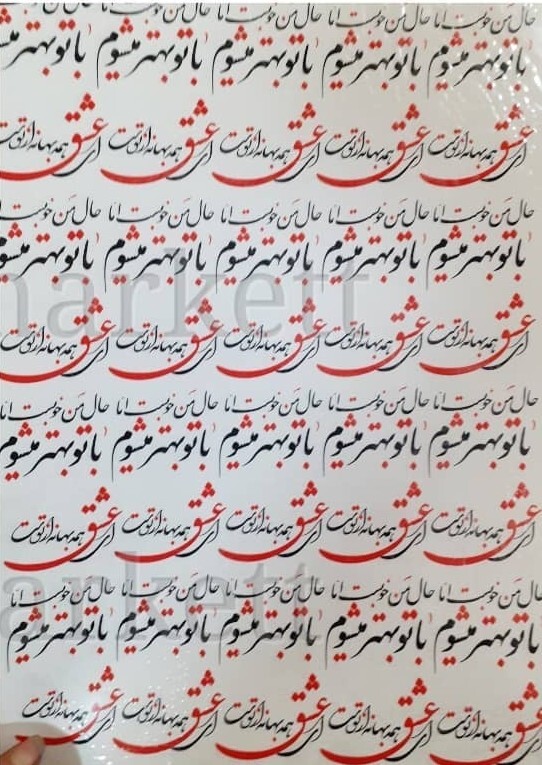 حال من خوبست اما حال من خوبست اما حال من خوبست اما حال من خوبست اما حال من خوبست اما
با تو بهتر میشوم با تو بهتر میشوم با تو بهتر میشوم با تو بهتر میشوم با تو بهتر میشوم
ای عشق همه بهانه از توست ای عشق همه بهانه از توست ای عشق همه بهانه از توست ای عشق همه بهانه از توست ای عشق همه بهانه از توست
حال من خوبست اما حال من خوبست اما حال من خوبست اما حال من خوبست اما حال من خوبست اما
با تو بهتر میشوم با تو بهتر میشوم با تو بهتر میشوم با تو بهتر میشوم با تو بهتر میشوم
arkett
ای عشق همه بهانه از توست ای عشق همه بهانه از توست ای عشق همه بهانه از توست ای عشق همه بهانه از توست ای عشق همه بهانه از توست
حال من خوبست اما حال من خوبست اما حال من خوبست اما حال من خوبست اما حال من خوبست اما
با تو بهتر میشوم با تو بهتر میشوم با تو بهتر میشوم با تو بهتر میشوم با تو بهتر میشوم
ای عشق همه بهانه از توست ای عشق همه بهانه از توست ای عشق همه بهانه از توست ای عشق همه بهانه از توست ای عشق همه بهانه از توست
حال من خوبست اما حال من خوبست اما حال من خوبست اما حال من خوبست اما حال من خوبست اما
با تو بهتر میشوم با تو بهتر میشوم با تو بهتر میشوم با تو بهتر میشوم با تو بهتر میشوم
arkett
ای عشق همه بهانه از توست ای عشق همه بهانه از توست ای عشق همه بهانه از توست ای عشق همه بهانه از توست ای عشق همه بهانه از توست